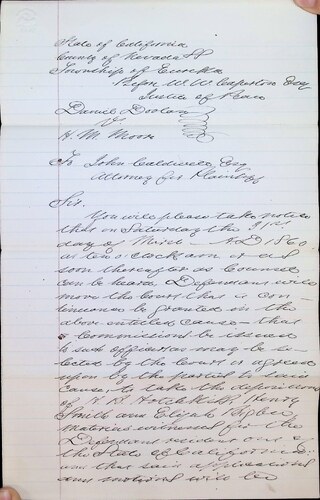 State of California
County of Nevada SS
Township of Eureka
Before W. W. Caperton Esq
Justice of Peace
Daniel Doolan
Vs
H. M. Moore
To John Caldwell Esq
Attorney for Plaintiff
Sir.
You will please take notice
that on Saturday the 31st
day of March A.D. 1860
at ten o'clock a.m. or as
soon thereafter as Counsel
can be heard Defendant will
move the Court that a con-
tinuance be granted in the
above entitled cause - that
a commission be issued
to such officer as may be se-
lected by the Court or agreed
upon by the parties to said
cause, to take the deposition
of Hotchkiss, Henry
Smith and Elijah Bigbee
material witnesses for the
Defendant resident out of
the State of California
that said application
and motion will be